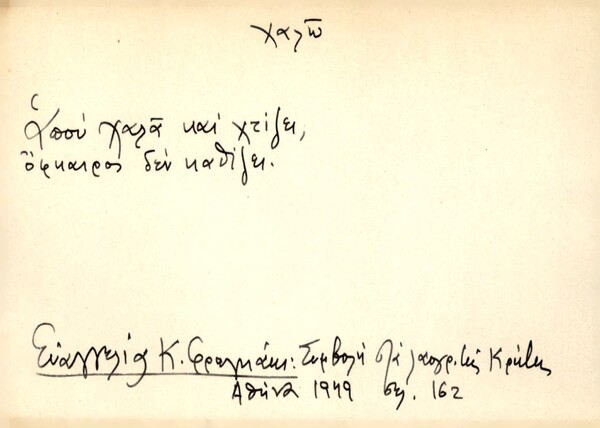 χαλῶ
Ὁποὺ χαλᾶ καὶ χτίζει,
ὄφκαιρος δὲν καθίζει.
Εὐαγγελία Κ. Φραγκάκι: Συμβολὴ στὰ λαογρ. τῆς Κρήτης
Ἀθήνα 1949 σελ. 162